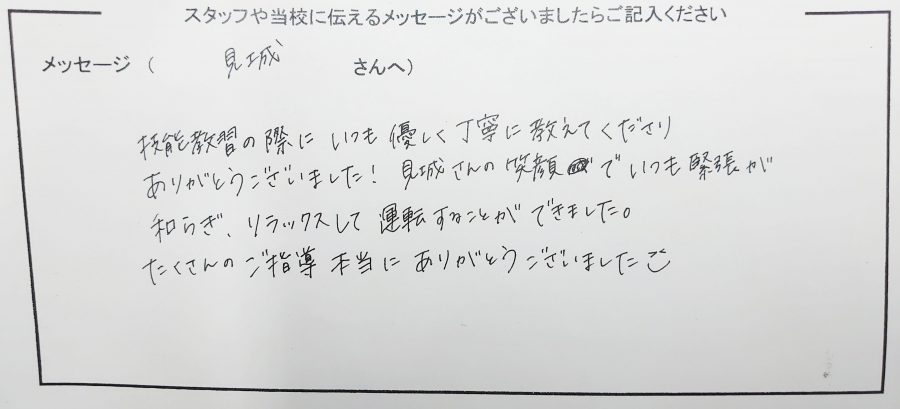 スタッフや当校に伝えるメッセージがございましたらご記入ください
メッセージ（ 見城 さんへ）
技能教習の際にいつも優しく丁寧に教えてくださり
ありがとうございました! 見城さんの笑顔でいつも緊張が
和らぎ、リラックスして運転することができました。
たくさんのご指導本当にありがとうございました